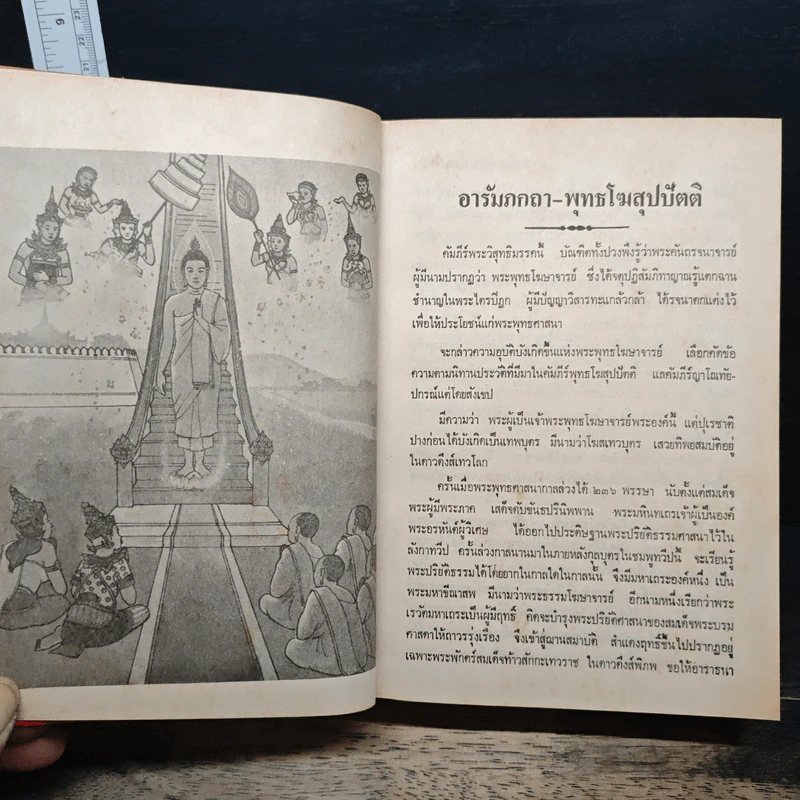 9
23
22
21
อารัมภกถา-พุทธโฆสุปปัตติ
คัมภีร์พระวิสุทธิมรรคนี้ บัณฑิตทั้งปวงพึงรู้ว่าพระคันถรจนาจารย์
ผู้มีนามปรากฏว่า พระพุทธโฆษาจารย์ ซึ่งได้จตุปฏิสัมภิทาญาณรู้แตกฉาน
ชำนาญในพระไตรปิฎก ผู้มีปัญญาวิสารทะแกล้วกล้า ได้รจนาตกแต่งไว้
เพื่อให้ประโยชน์แก่พระพุทธศาสนา
จะกล่าวความอุบัติบังเกิดขึ้นแห่งพระพุทธโฆษาจารย์ เลือกคัดข้อ
ความตามนิทานประวัติที่มีมาในคัมภีร์พุทธโฆสุปปัตติ แลคัมภีร์ญาโณทัย-
ปกรณ์แต่โดยสังเขป
มีความว่า พระผู้เป็นเจ้าพระพุทธโฆษาจารย์พระองค์นี้ แต่ปุเรชาติ
ปางก่อนได้บังเกิดเป็นเทพบุตร มีนามว่าโฆสเทวบุตร เสวยทิพยสมบัติอยู่
ในดาวดึงส์เทวโลก
ครั้นเมื่อพระพุทธศาสนากาลล่วงได้ ๒๓๖ พรรษา นับตั้งแต่สมเด็จ
พระผู้มีพระภาค เสด็จดับขันธปรินิพพาน พระมหินทเถรเจ้าผู้เป็นองค์
พระอรหันต์ผู้วิเศษ ได้ออกไปประดิษฐานพระปริยัติธรรมศาสนาไว้ใน
ลังกาทวีป ครั้นล่วงกาลนานมาในภายหลังกุลบุตรในชมพูทวีปนี้ จะเรียนรู้
พระปริยัติธรรมได้โดยยากในกาลใดในกาลนั้น จึงมีมหาเถระองค์หนึ่ง เป็น
พระมหาขีณาสพ มีนามว่าพระธรรมโฆษาจารย์ อีกนามหนึ่งเรียกว่าพระ
เรวัตมหาเถระเป็นผู้มีฤทธิ์ คิดจะบำรุงพระปริยัติศาสนาของสมเด็จพระบรม
ศาสดาให้ถาวรรุ่งเรือง จึงเข้าสู่ฌานสมาบัติ สำแดงฤทธิ์ขึ้นไปปรากฏอยู่
เฉพาะพระพักตร์สมเด็จท้าวสักกะเทวราช ในดาวดึงส์พิภพ ขอให้อาราธนา